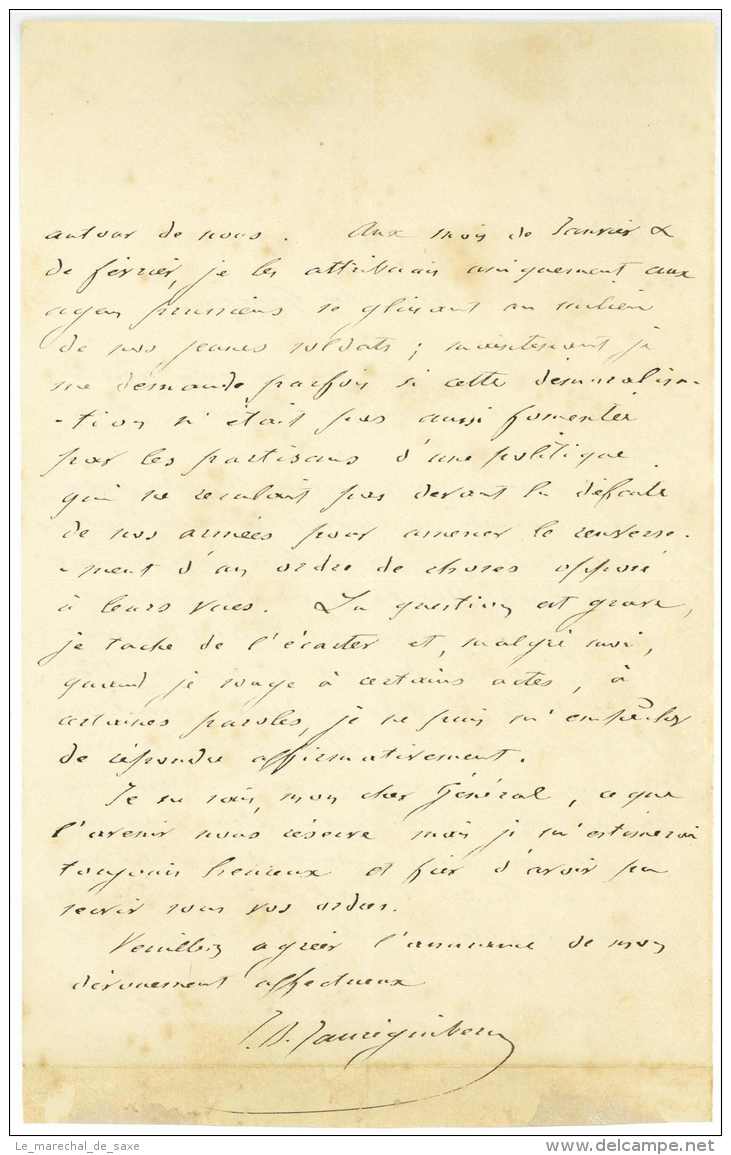 autour de nous. Aux mois de Janvier &
de février, je les attribuais uniquement aux
agens prussiens se glissant au milieu
de nos jeunes soldats ; maintenant je
me demande parfois si cette démoralisa-
-tion n'était pas aussi fomentée
par les partisans d'une politique
qui ne reculait pas devant la défaite
de nos armées pour amener le renverse-
-ment d'un ordre de choses opposé
à leurs vues. La question est grave,
je tache de l'écarter et, malgré moi,
quand je songe à certains actes, à
certaines paroles, je ne puis m'empêcher
de répondre affirmativement.
Je ne sais, mon cher Général, ce que
l'avenir nous réserve mais je m'estimerai
toujours heureux et fier d'avoir pu
servir sous vos ordres.
Veuillez agréer l'assurance de mon
dévouement affectueux
J. B. Jauréguiberry
Le_marechal_de_saxe
delcampe.net